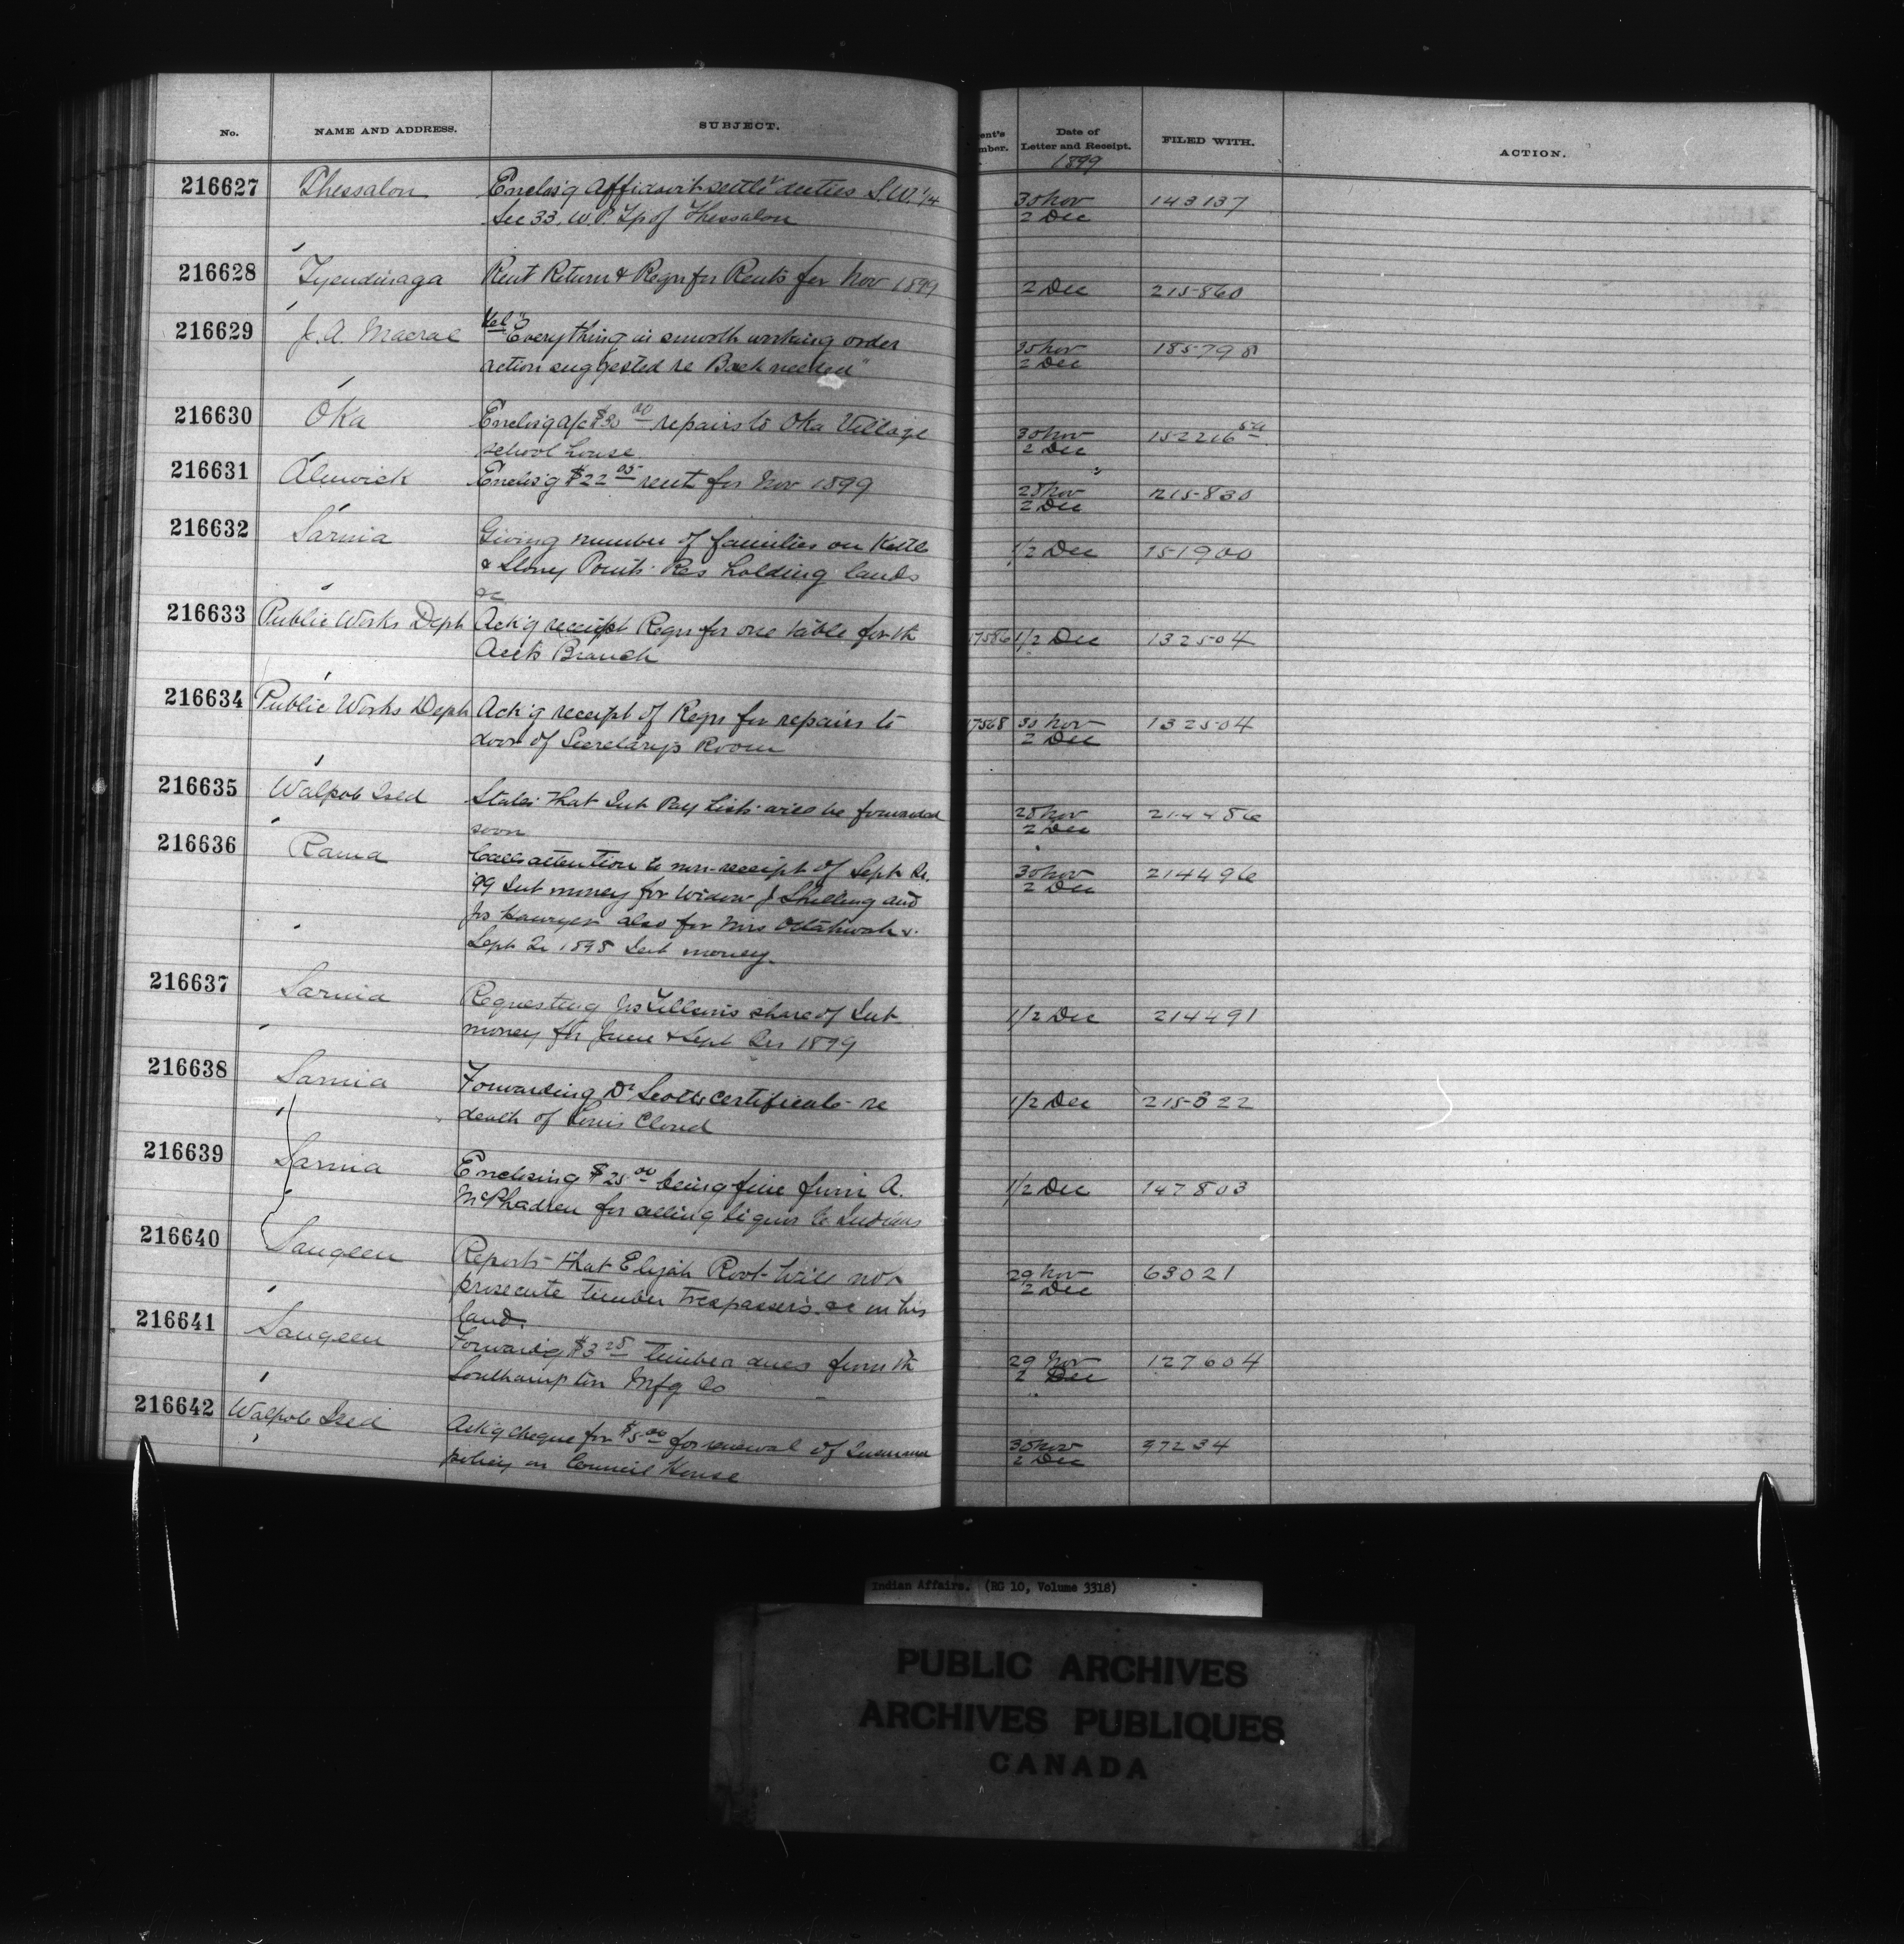 No. NAME AND ADDRESS. SUBJECT. Date of Letter and Receipt. FILED WITH. ACTION.
1899
216627 Thessalon Enclos'g Affidavit settlt duties S.W. 1/4 30 Nov 143137
Sec 33, W.P. Tp of Thessalon 2 Dec
216628 Tyendinaga Rent Return & Reqn for Rents for Nov 1899 2 Dec 215860
216629 J. A. Macrae Tel "Everything in smooth working order 30 Nov 185798
action suggested re Back needed" 2 Dec
216630 Oka Enclos'g a/c $30 00 repairs to Oka Village 30 Nov 152216
school house 2 Dec
216631 Alnwick Enclos'g $22 05 rent for Nov 1899 28 Nov 215830
2 Dec
216632 Sarnia Giving number of families on Kettle 1/2 Dec 151900
& Stony Points Res holding lands
&c
216633 Public Works Dept Ack'g receipt Reqn for one table for th 17586 1/2 Dec 132504
Accts Branch
216634 Public Works Dept Ack'g receipt of Reqn for repairs to 17568 30 Nov 132504
door of Secretary's Room 2 Dec
216635 Walpole Isld States that Int Pay Lists will be forwarded 28 Nov 214486
soon 2 Dec
216636 Rama Calls attention to non-receipt of Sept Qr. 30 Nov 214496
'99 Int money for Widow J Shilling and 2 Dec
also for Mrs
Sept Qr 1898 Int money.
216637 Sarnia Requesting share of Int 1/2 Dec 214491
money for June & Sept Qrs 1899
216638 Sarnia Forwarding Dr Scott's certificate re 1/2 Dec 215322
death of Louis Cloud
216639 Sarnia Enclosing $25 00 being fine from A. 1/2 Dec 147803
McPhadren for selling liquor to Indians
216640 Saugeen Reports that Elijah Root will not 29 Nov 63021
prosecute timber trespassers &c on his 2 Dec
land.
216641 Saugeen Forward'g $3 25 timber dues from th 29 Nov 127604
Southampton Mfg Co 2 Dec
216642 Walpole Isld Ack'g cheque for $5 00 for renewal of Insurance 30 Nov 37234
policy on Council House 2 Dec
Indian Affairs. (RG 10, Volume 3318)
PUBLIC ARCHIVES
ARCHIVES PUBLIQUES
CANADA